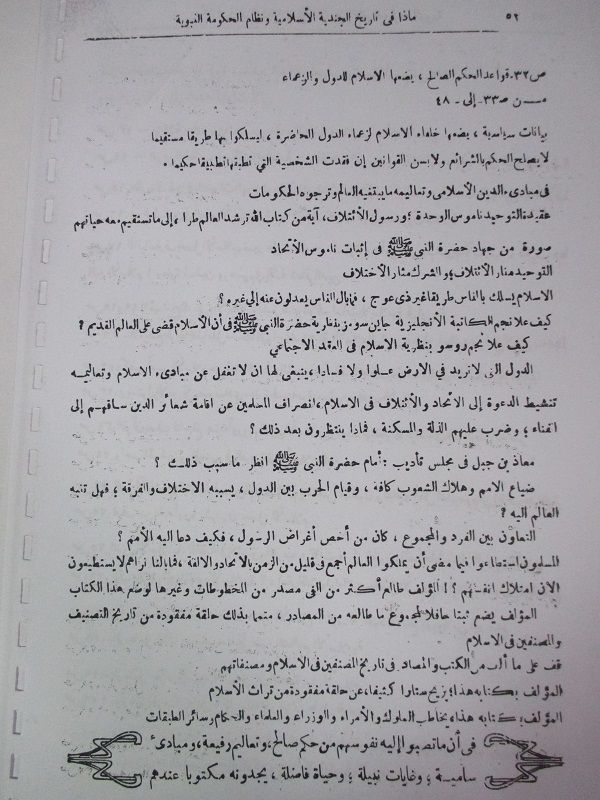 ٥٢ ماذا فى تاريخ الجندية الأسلامية ونظام الحكومة النبوية
ص٣٢ـ قواعد الحكم الصالح ، يضعها الاسلام للدول والزعماء
مـــن ص٣٣ـ إلى ـ ٤٨
بيانات سياسية ، يضعها خلفاء الاسلام لزعماء الدول الحاضرة ، ليسلكوا بها طريقا مستقيما
لا يصلح الحكم بالشرائع ولا بسن القوانين إن فقدت الشخصية التي تطبقها تطبيقا حكيما ٠
فى مبادىء الدين الأسلامى وتعاليمه ما يبتغيه العالم وترجوه الحكومات
عقيدة التوحيد ناموس الوحدة ؛ ورسول الأئتلاف ، آية من كتاب الله ترشد العالم طرا ، إلى ما تستقيم معه حياتهم
صورة من جهاد حضرة النبي ﷺ فى إثبات ناموس الأتحاد
التوحيد منار الأئتلاف ؛ والشرك مثار الأختلاف
الاسلام يسلك بالناس طريقا غير ذى عوج ، فما بال الناس يعدلون عنه إلى غيره ؟
كيف علا نجم الكاتبة الأنجليزية جاين سومز بنظرية حضرة النبي ﷺ فى أن الأسلام قضى على العالم القديم ؟
كيف علا نجم روسو بنظرية الاسلام فى العقد الاجتماعي
الدول التى لا تريد فى الارض علوا ولا فسادا ، ينبغى لها ان لا تغفل عن مبادىء الاسلام وتعاليمه
تنشيط الدعوة إلى الأتحاد والأئتلاف فى الاسلام ، انصراف المسلمين عن اقامة شعائر الدين ساقهم إلى
الفناء ؛ وضرب عليهم الذلة والمسكنة ، فماذا ينتظرون بعد ذلك ؟
معاذ بن جبل فى مجلس تأديب : أمام حضرة النبي ﷺ انظر ما سبب ذلك ؟
ضياع الامم وهلاك الشعوب كافة ، وقيام الحرب بين الدول ، يسببه الاختلاف والفرقة ؛ فهل تنبه
العالم اليه ؟
التعاون بين الفرد والمجموع ، كان من أخص أغراض الرسول ، فكيف دعا اليه الأمم ؟
المسلمون استطاعوا فيما مضى أن يملكوا العالم أجمع فى قليل من الزمن بالاتحاد والالفة ، فما بالنا نراهم لا يستطيعون
الآن امتلاك انفسهم ؟ ! المؤلف طالع أكثر من الفى مصدر من المخطوطات وغيرها لوضع هذا الكتاب
المؤلف يضع ثبتا حافلا لمجموع ما طالعه من المصادر ، متمما بذلك حلقة مفقودة من تاريخ التصنيف
والمصنفين فى الاسلام
قف على ما ألف من الكتب والمصادر فى تاريخ المصنفين فى الاسلام ومصنفاتهم
المؤلف بكتابه هذا ؛ يزيح ستارا كثيفا ؛ عن حلقة مفقودة من تراث الأسلام
المؤلف بكتابه هذا ، يخاطب الملوك والأمراء والوزراء والعلماء والحكام وسائر الطبقات
فى أن ما تصبوا إليه نفوسهم من حكم صالح ، وتعاليم رفيعة ، ومبادىء
ساميـة ؛ وغايات نبيلة ؛ وحياة فاضلة ، يجدونه مكتوبا عندهم